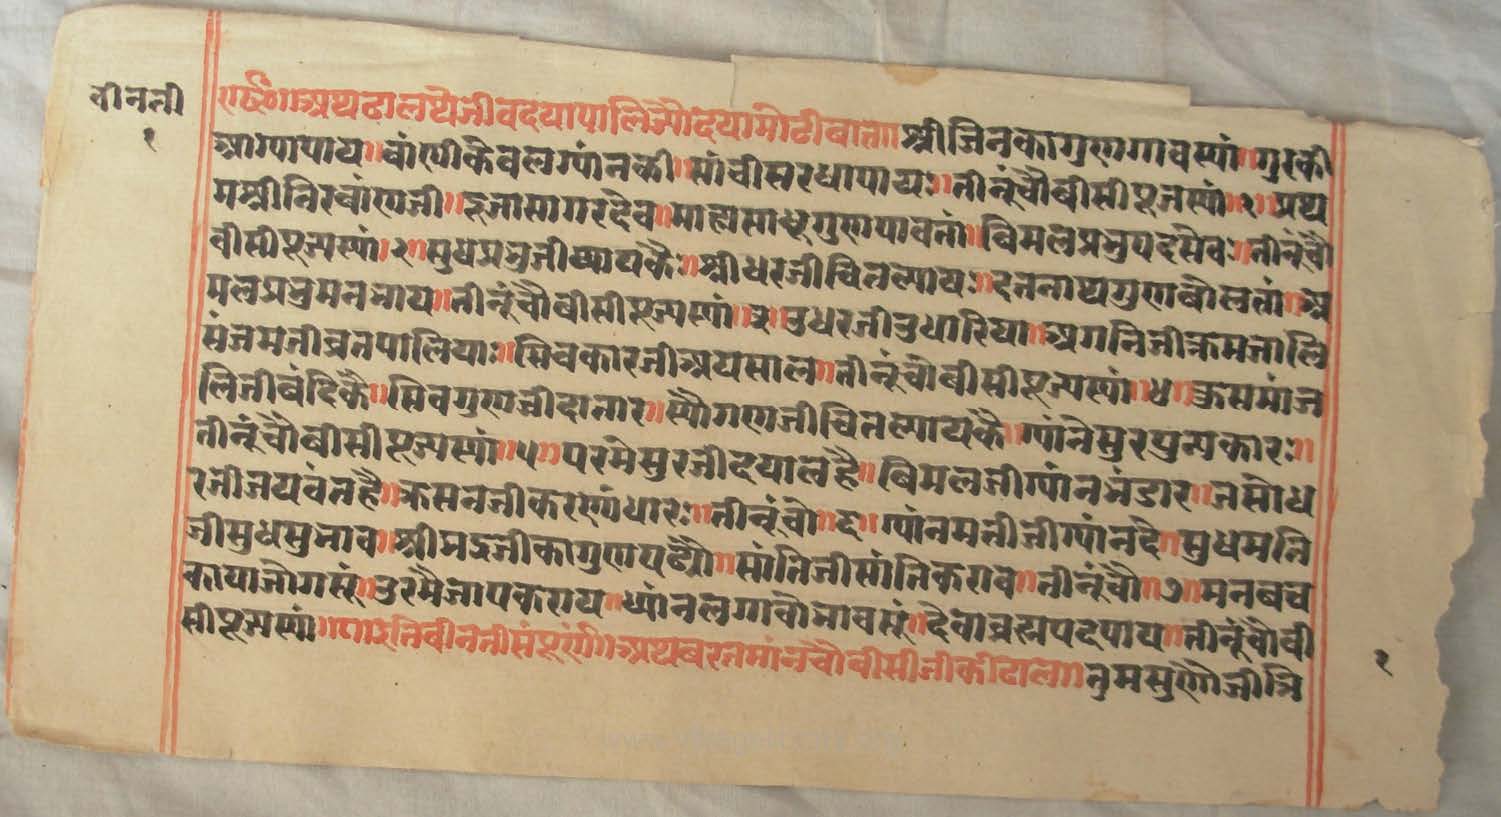 वीनती
१
॥अथ ढालष्टोजीवदयापालिजोदयामोटीवात॥श्रीजिनकागुणगावस्यां॥गुरकी
आग्यापाय॥वांणीकेवलग्यांनकी॥सांचीसरधापायः॥तीनूंचौबीसीपूजस्यां॥१॥प्रथ
मश्रीनिरवांणजी॥दूजासागरदेव॥माहासाधूगुणपावतां॥विमलप्रभुपदसेवः॥तीनूंचौ
वीसीपूज्यस्यां॥२॥सुधप्रभुजीध्यायकै॥श्रीधरजीचितल्यायः॥दतनाथगुणबोलतां॥अ
मलप्रभुमनभाय॥तीनूंचौबीसीपूज्यस्यां॥३॥उधरजीउधारिया॥अगनिजीक्रमजालि
संजमजीव्रतपालियाः॥सिवकारजीअयसाल॥तीनूंचौबीसीपूज्यस्यां॥४॥क्रुसमांज
लिजीबंदिकै॥सिवगुणजीदातार॥स्यौगणजीचितल्यायकै॥ग्यांनेसुरपुन्यकारः॥
तीनूंचौबीसीपूज्यस्यां॥५॥परमेसुरजीदयालहै॥बिमलजीग्यांनभंडार॥जसोध
रजीजयवंतहै॥क्रसनजीकरणधारः॥तीनूंचो॥६॥ग्यांनमतीजीग्यांनदे॥सुधमति
जीसुधसुभाव॥श्रीभद्रजीकागुणपढ्यौ॥सांतिजीसांतिकराव॥तीनूंचौ॥७॥मनबच
कायाजोगसूं॥उरमैजापकराय॥ध्यांनलगावोभावसूं॥देवाब्रह्मपदपाय॥तीनूंचौवी
सीपूज्यस्यां॥८॥इतिवीनतीसंपूर्णं॥अथबरतमांनचौबीसीजीकीढाल॥तुमसुणोजीत्रि
१